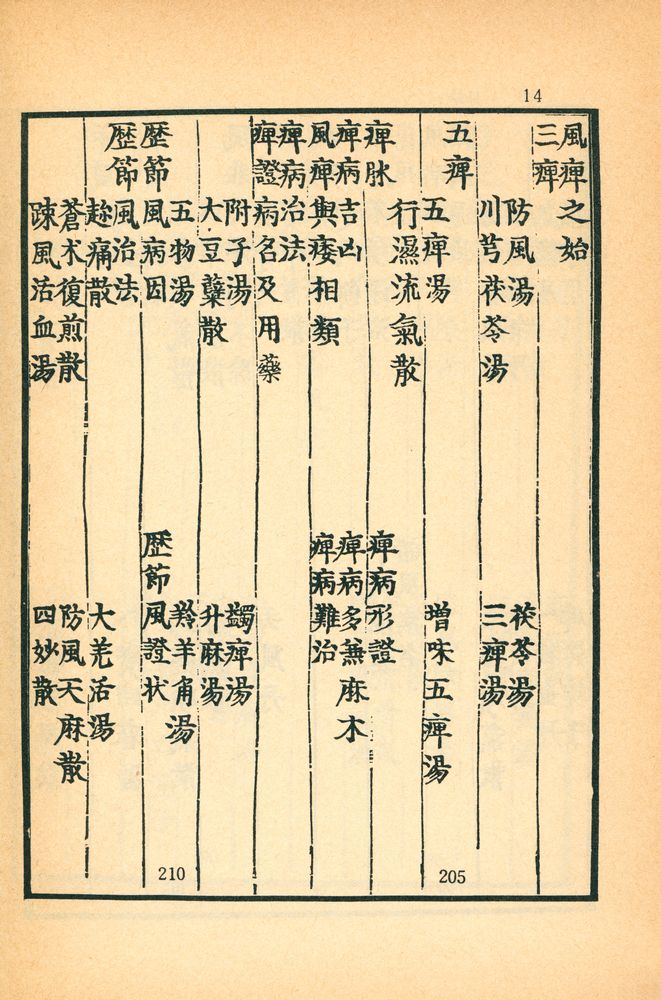 14
風痺之始
三痺
防風湯
茯苓湯
川芎茯苓湯
三痺湯
五痺
五痺湯
增味五痺湯
行濕流氣散
痺脉
痺病形證
痺病吉凶
痺病多兼麻木
風痺與痿相類
痺病難治
痺病治法
痺證病名及用藥
附子湯
蠲痺湯
大豆蘗散
升麻湯
五物湯
羚羊角湯
歷節風病因
歷節風證狀
歷節風治法
趂痛散
大羌活湯
蒼朮復煎散
防風天麻散
疎風活血湯
四妙散
210
205